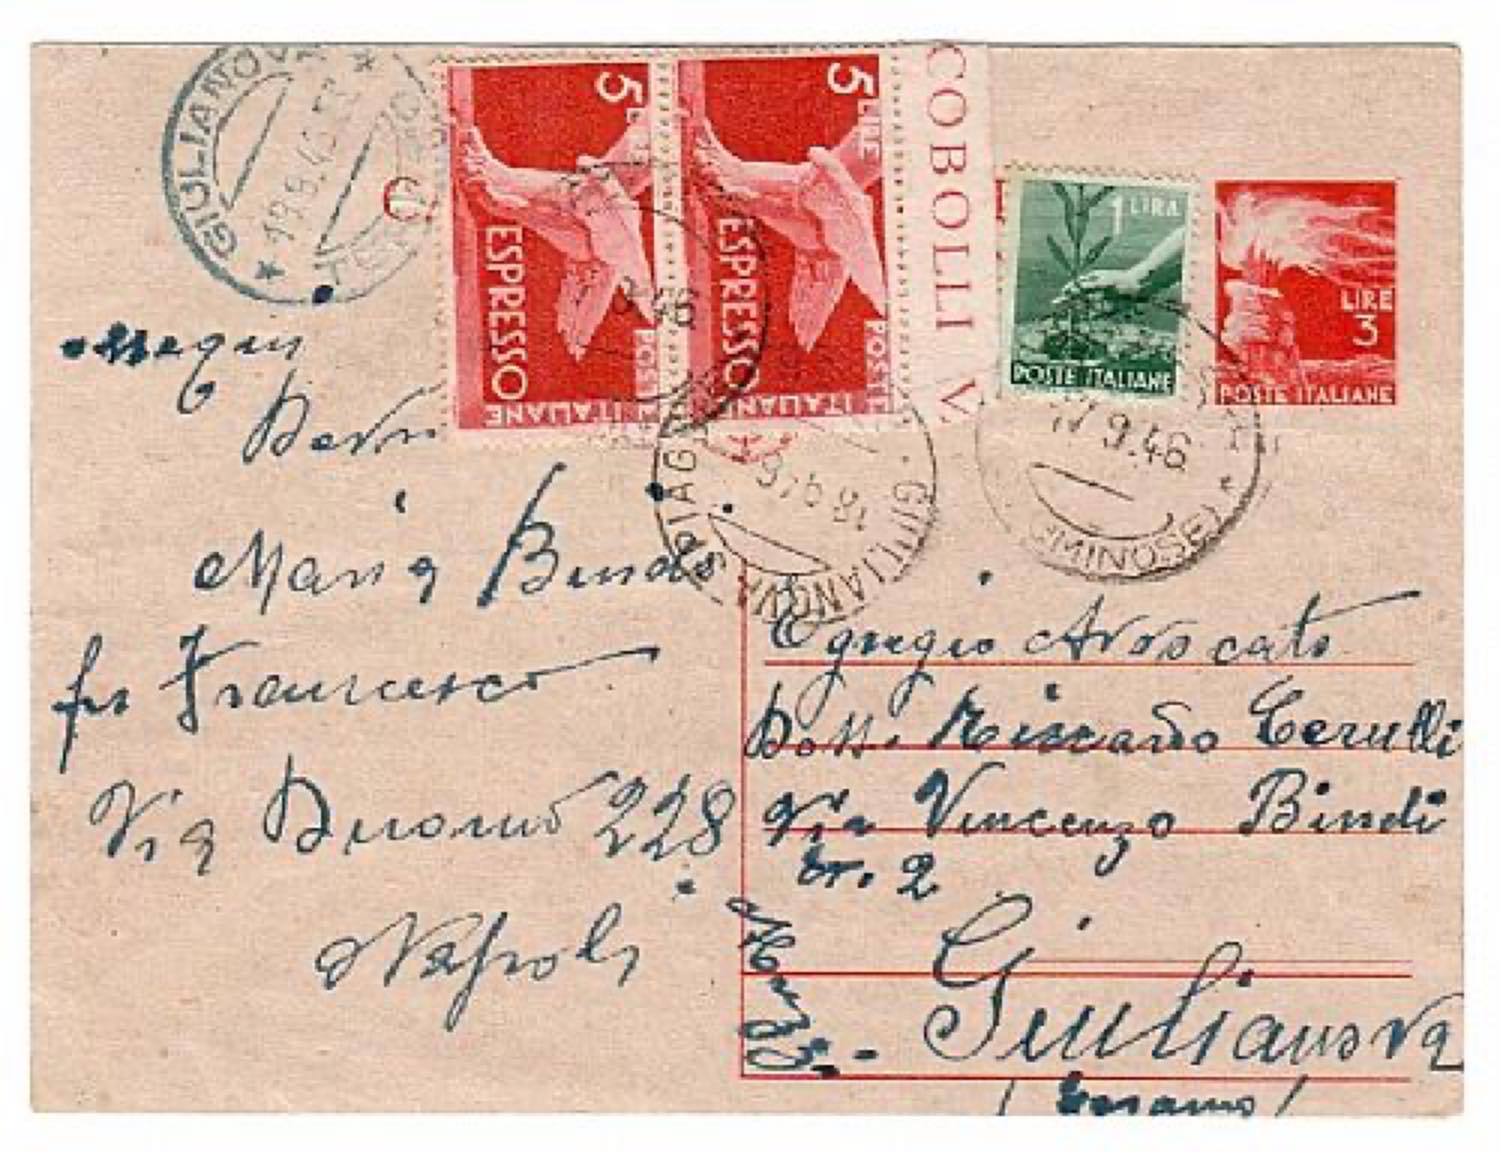 GIULIANOVA
5 LIRE
ESPRESSO
POSTE ITALIANE
5 LIRE
ESPRESSO
POSTE ITALIANE
COBOLLI V
1 LIRA
POSTE ITALIANE
LIRE
3
POSTE ITALIANE
9.46
GIULIANOVA SPIAGGIA
Maria
fu Francesco
Via Duomo 228
Napoli
Egregio Avvocato
Dott. Riccardo Cerulli
Via Vincenzo Bindi
tr. 2
Giulianova
(Teramo)